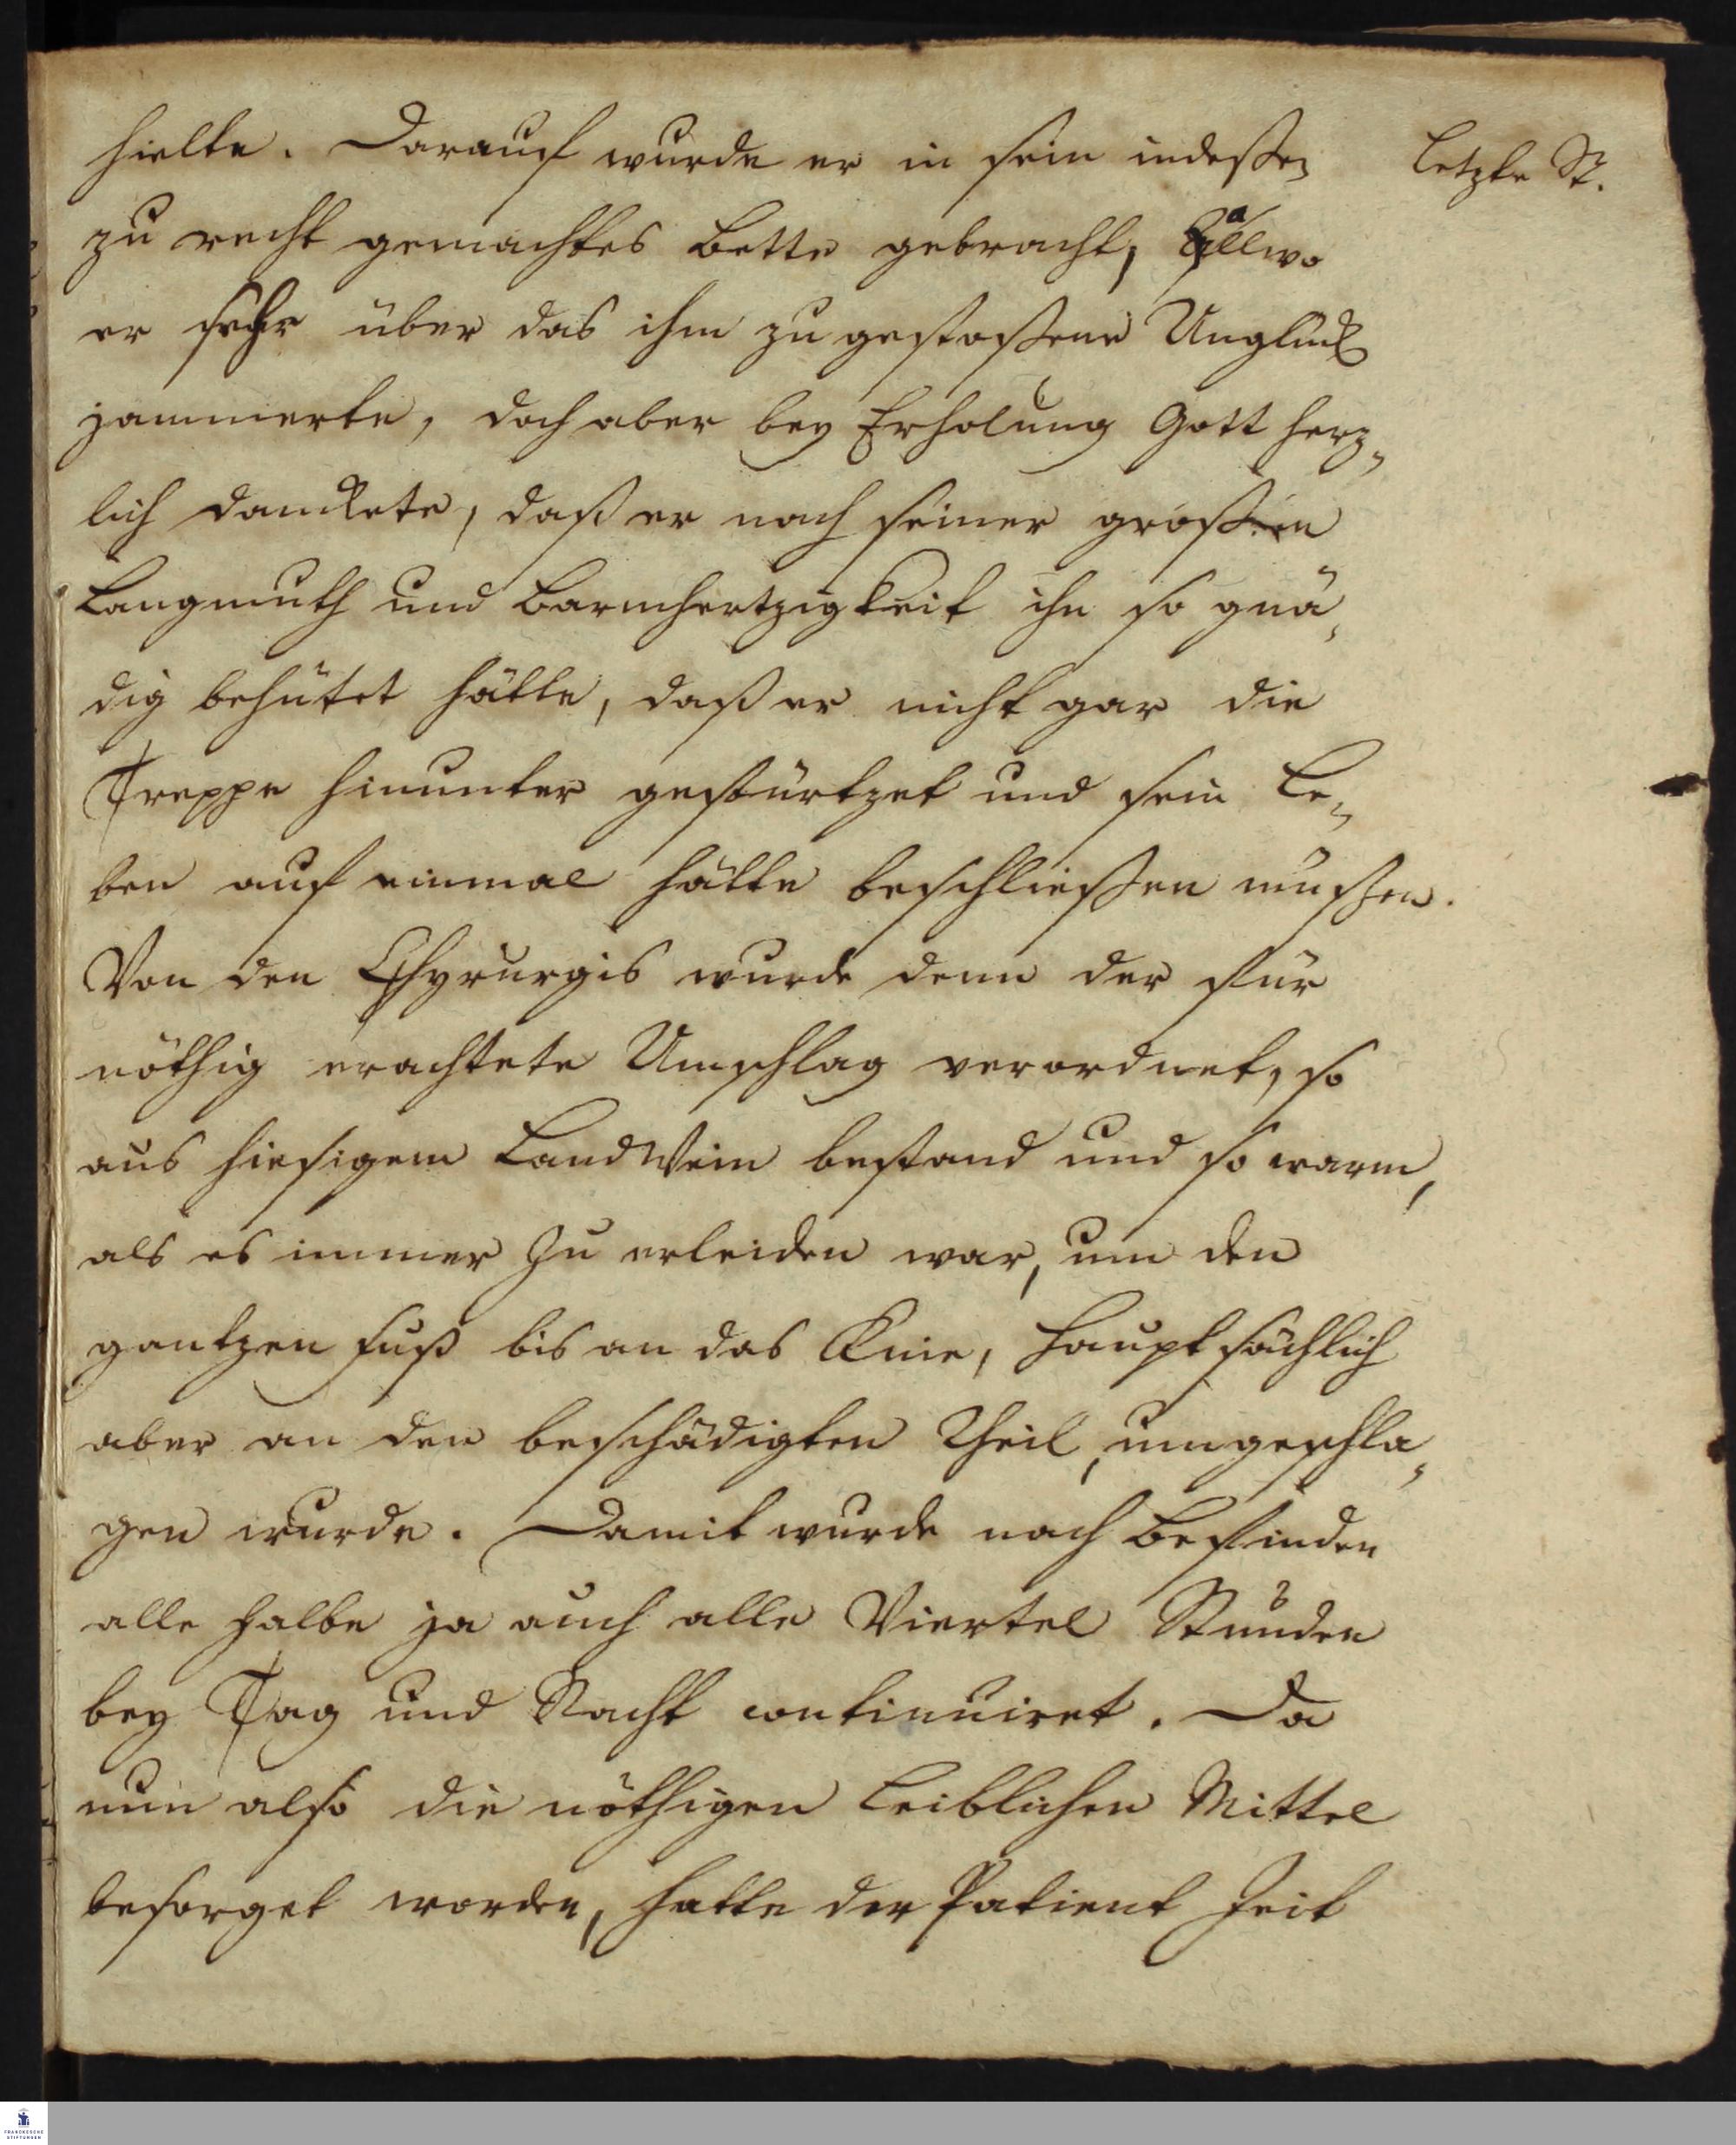 hielte. Darauf wurde er in sein indeßen
letzte St.
zu recht gemachtes Bette gebracht, allwo
er sehr über das ihm zu gestoßene Unglück
jammerte, doch aber bey Erholung Gott herz„
lich danckete, daß er nach seiner großen
Langmuth und Barmhertzigkeit ihn so gnä„
dig behütet hätte, daß er nicht gar die
Treppe hinunter gestürtzet und sein Le„
ben auf einmal hätte beschließen müßen.
Von den Chyrurgis wurde denn der für
nöthig erachtete Umschlag verordnet, so
aus hiesigem LandWein bestand und so warm,
als es immer zu erleiden war, um den
gantzen fuß bis an das Knie, hauptsächlich
aber an den beschädigten Theil, umgeschla„
gen wurde. Damit wurde nach Befinden
alle halbe ja auch alle Viertel Stunden
bey Tag und Nacht continuiret. Da
nun also die nöthigen Leiblichen Mittel
besorget worden, hatte der Patient Zeit
FRANCKESCHE
STIFTUNGEN